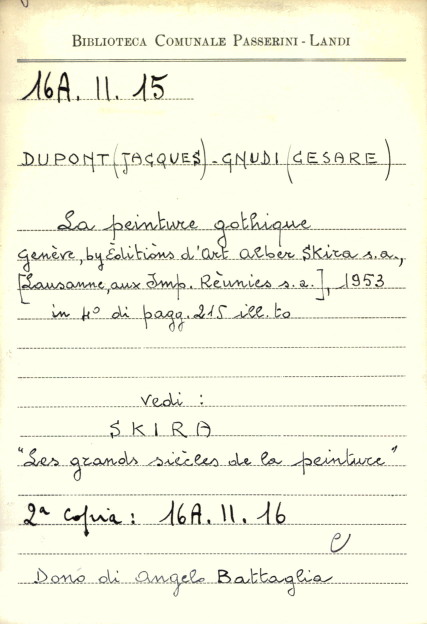 BIBLIOTECA COMUNALE PASSERINI - LANDI
16A. II. 15
DUPONT (JACQUES) - GNUDI (CESARE)
La peinture gothique
Genève, by Èditiòns d'Art Alber Skira s.a.,
[Lausanne, aux Imp. Rèunies s.a.], 1953
in 4° di pagg. 215 ill.to
vedi :
SKIRA
"Les grands siècles de la peinture"
2ª copia : 16A. II. 16
e
Dono di Angelo Battaglia